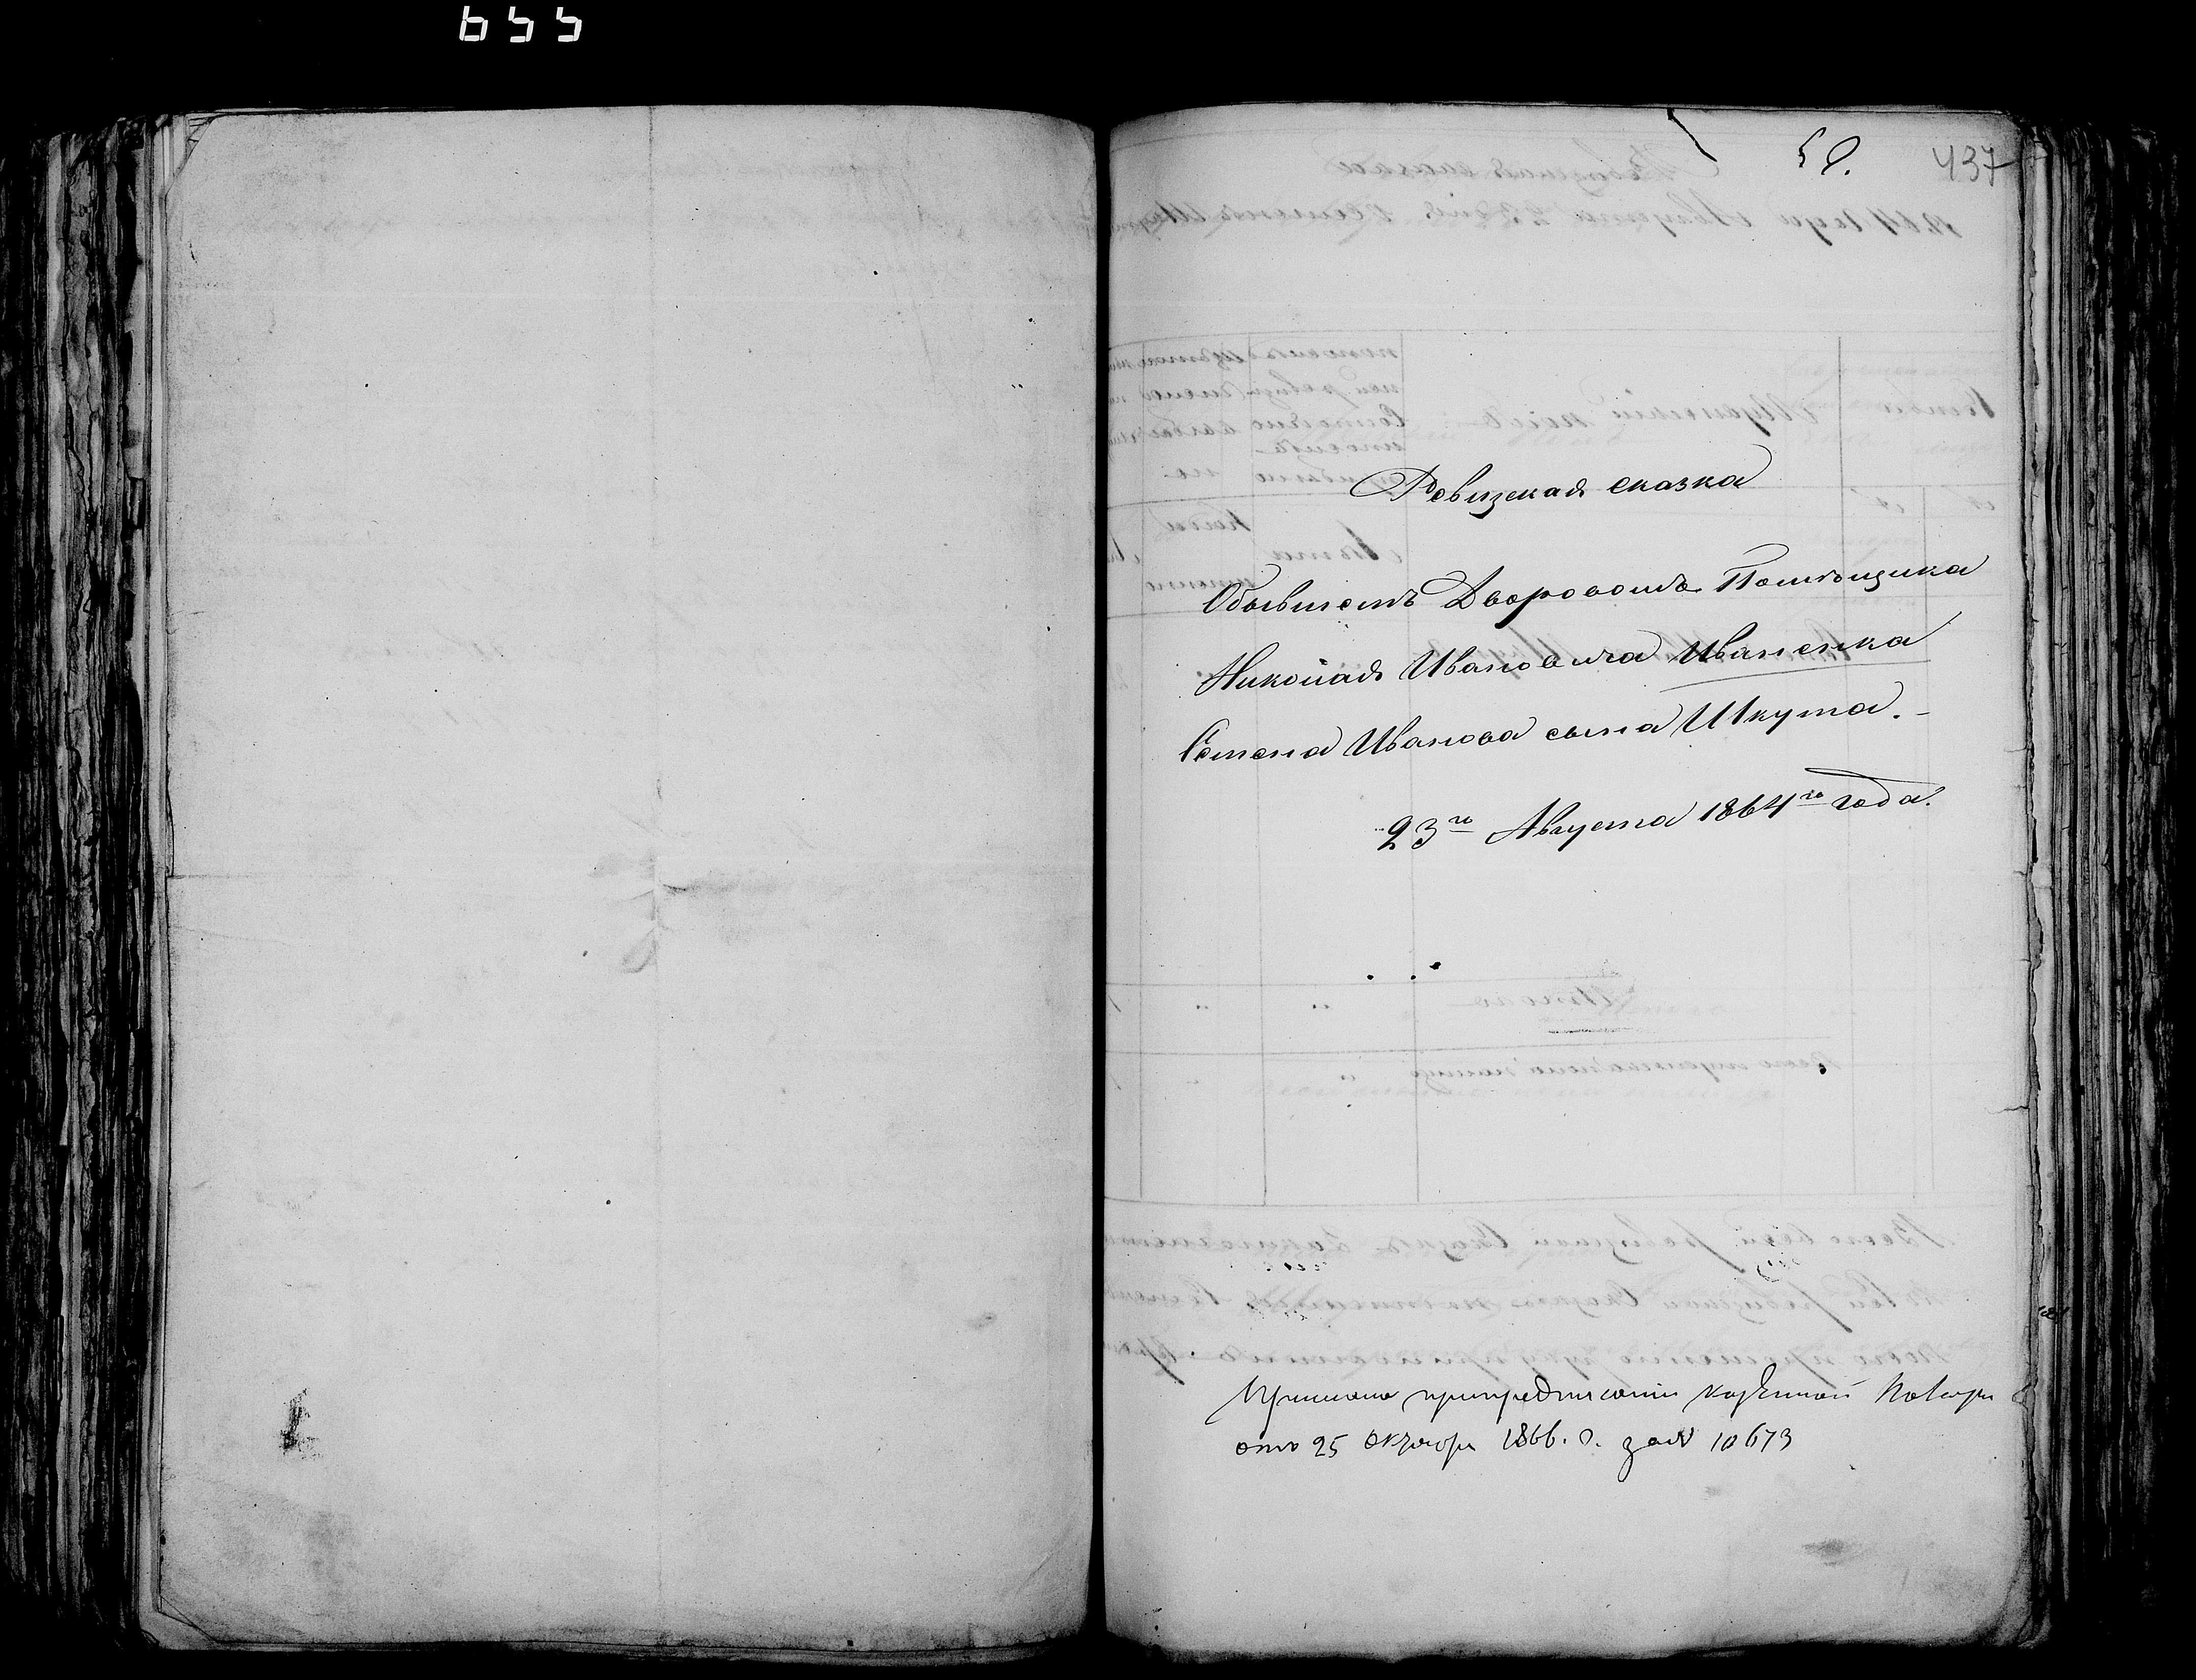 655
50.
437
Ревизская сказка
Обывшемъ Дворовомъ Помѣщика
Николая Ивановича Иваненка
Семена Иванова сына Шкута.-
23го Августа 1864го года.
Прислано припредписаніи казенной Палаты
отъ 25 октября 1866. г. за № 10673